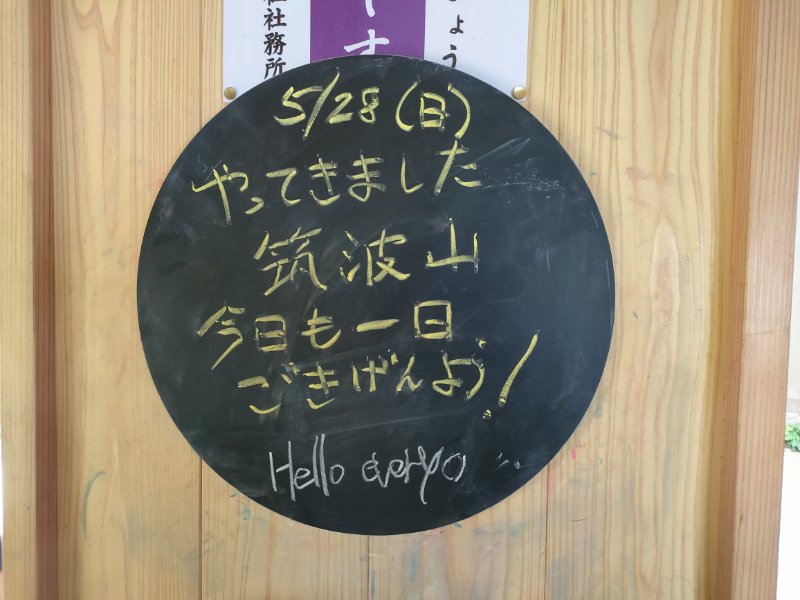 社務所
オ
ょう
5/28(日)
やってきました
筑波山
今日も一日
ごきげんよう!
Hello everyo